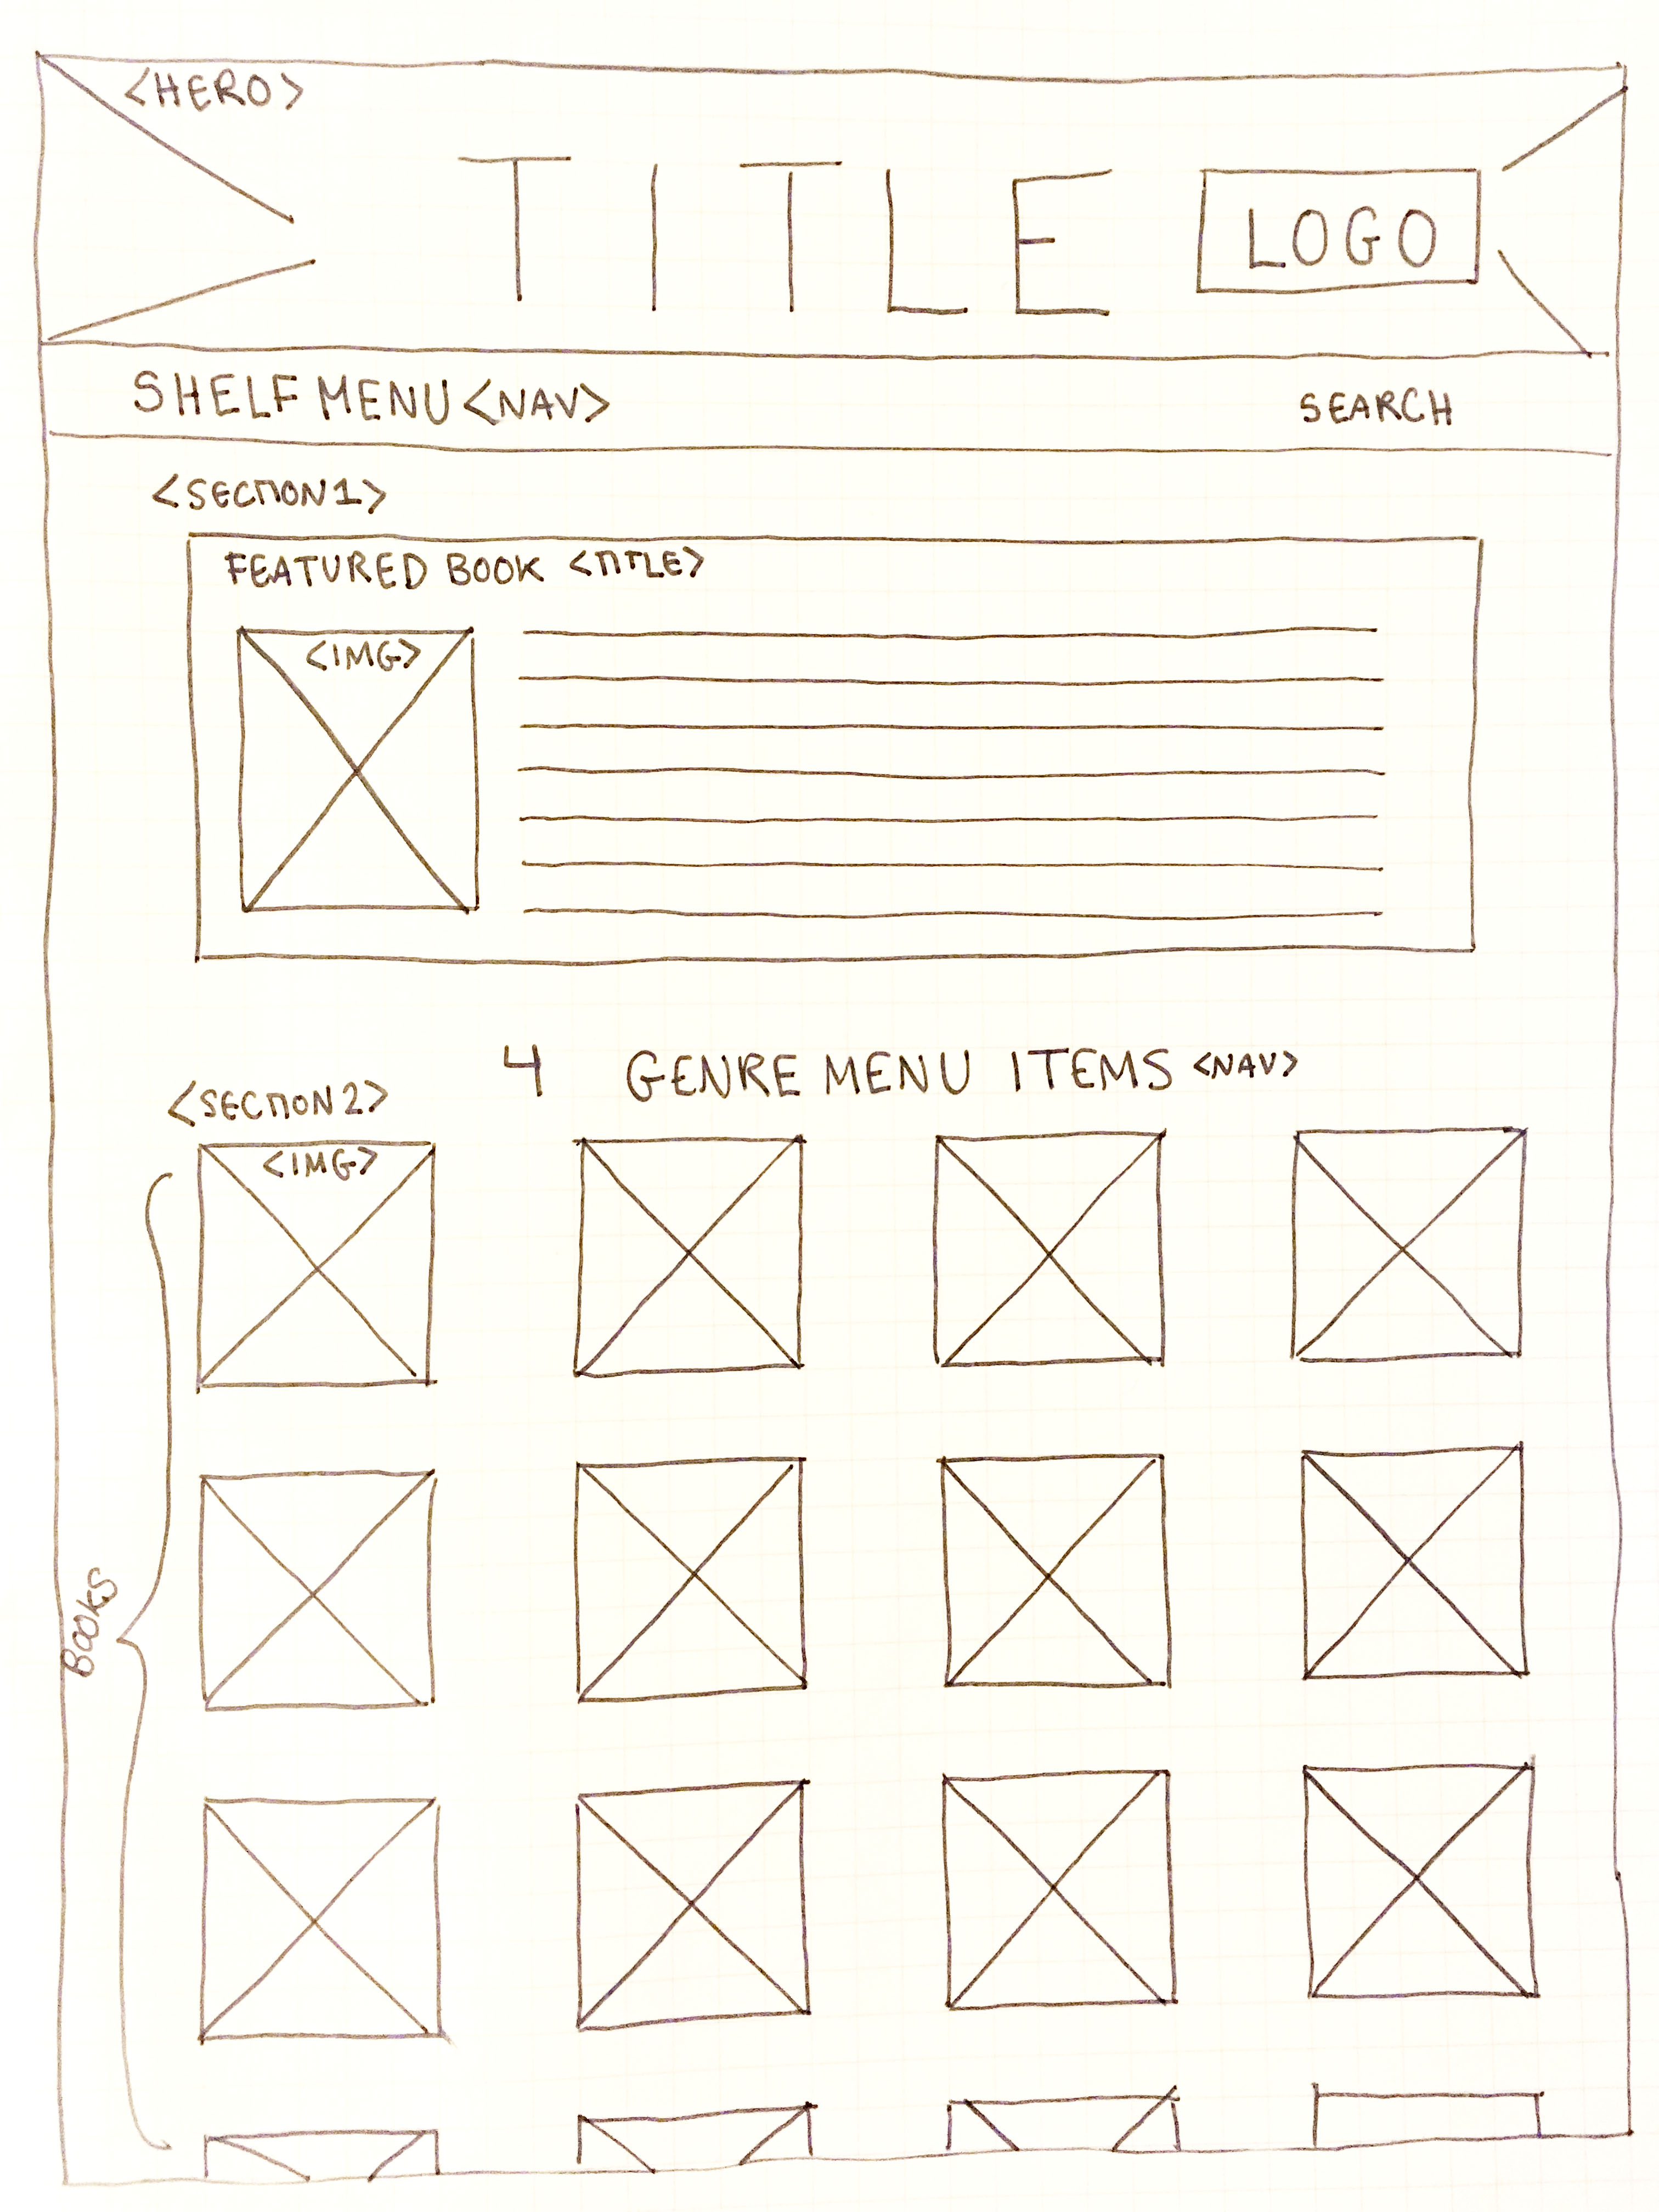 <HERO>
TITLE
LOGO
SHELF MENU <NAV>
SEARCH
<SECTION 1>
FEATURED BOOK <TITLE>
<IMG>
4 GENRE MENU ITEMS <NAV>
<SECTION 2>
<IMG>
BOOKS